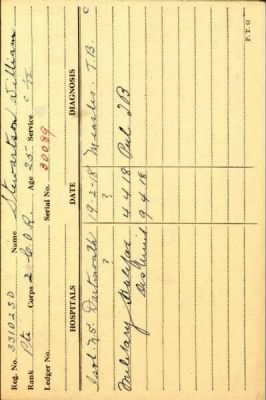 Reg. No. 3310230 Name Stewartson William
Rank Pte Corps 2 C.O.R. Age 23 Service
Ledger No. Serial No. 30089
HOSPITALS DATE DIAGNOSIS
Isol. N.S. Dartmouth 19-2-18 Measles T.B.
? ?
Military Halifax 4-4-18 Pul TB
9 4 18
P.T.O.